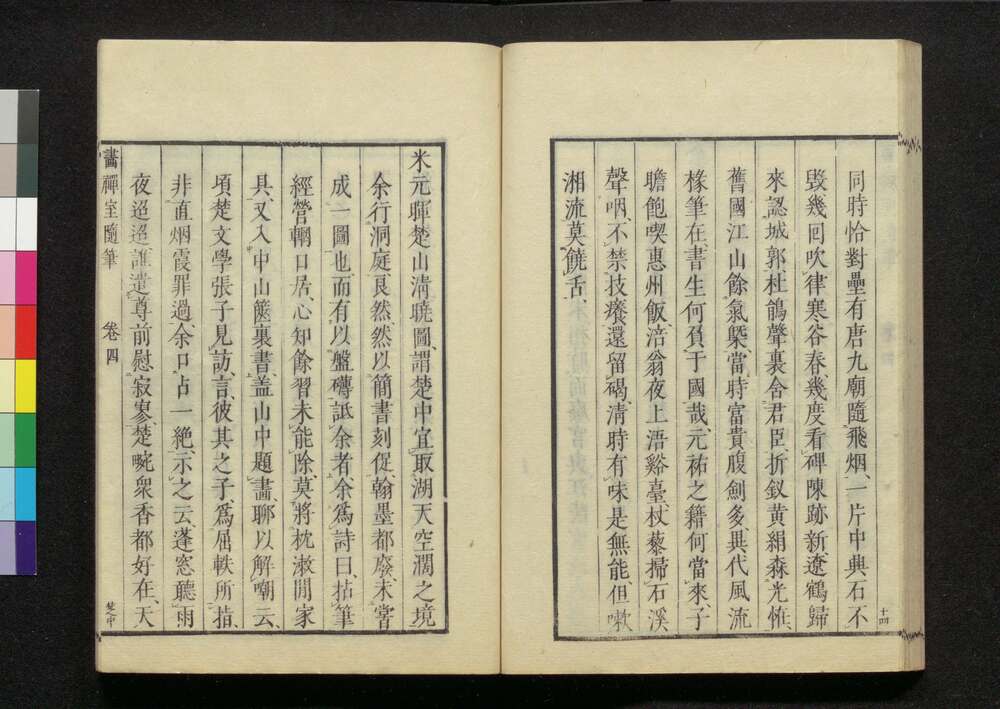 同時恰對壘有唐九廟隨飛烟、一片中興石不
毀幾回吹律寒谷春、幾度看碑陳跡新、遼鶴歸
來認城郭、杜鵑聲裏含君臣、折釵黃絹森光怪、
舊國江山餘氣槩、當時富貴腹劍多、異代風流
椽筆在、書生何負于國哉、元祐之籍何當來、子
瞻飽喫惠州飯、涪翁夜上浯谿臺、杖藜掃石溪
聲咽、不禁技癢還留碣、清時有味是無能、但嗽
湘流莫饒舌、
十四
米元暉楚山清曉圖、謂楚中宜取湖天空濶之境
余行洞庭良然然以簡書刻促、翰墨都廢、未嘗
成一圖也而有以盤礴詆余者、余爲詩曰、拈筆
經營輞口居、心知餘習未能除、莫將枕漱閒家
具、又入中山篋裏書、盖山中題畵、聊以解嘲云、
頃楚文學張子見訪、言、彼其之子、爲屈軼所指、
非直烟霞罪過、余口占一絶示之云、蓬窓聽雨
夜迢迢誰遣尊前慰寂寥、楚畹衆香都好在、天
畵禪室隨筆　卷四